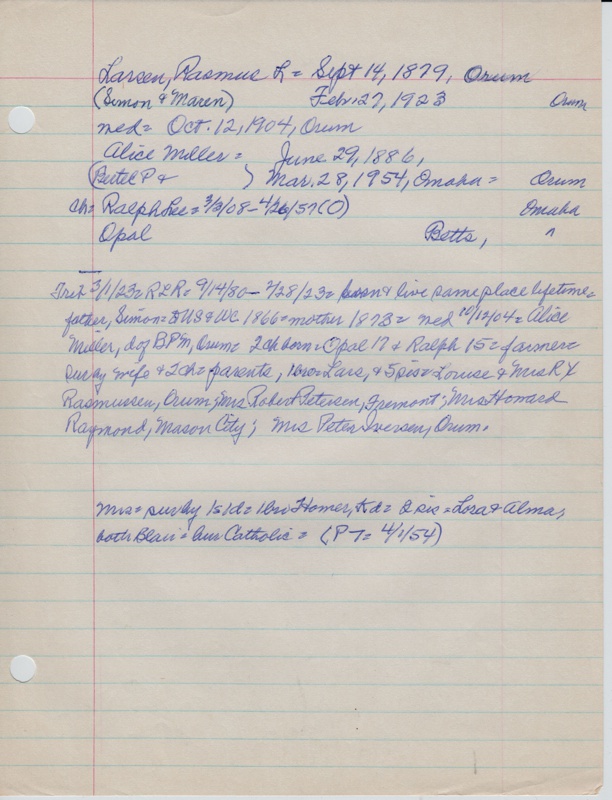 Larsen, Rasmus L = Sept 14, 1879, Orum
(Simon & Maren) Feb. 27, 1923 Orum
med = Oct. 12, 1904, Orum
Alice Miller = June 29, 1886,
(Bertel P & ) Mar. 28, 1954, Omaha = Orum
ch = Ralph Lee = 3/3/08 - 4/26/57 (O) Omaha
Opal Betts, ^
3/1/23 = R L R = 9/14/80 - 2/28/23 = born & live same place lifetime =
father, Simon = US & WC 1866 = mother 1873 = med 10/12/04 = Alice
Miller, d of B P M, Orum = 2 ch born = Opal 17 & Ralph 15 = farmer =
surby wife & 2 ch = parents, 1 bro = Lars, & 5 sis = Louise & Mrs R X
Rasmussen, Orum; Mrs Robert Petersen, Fremont; Mrs Howard
Raymond, Mason City; Mrs Peter Iversen, Orum.
Mrs = surby 1s 1d = 1 bro Homer, = 2 sis = Lora & Alma,
both Blair = bur Catholic = (P T = 4/1/54)